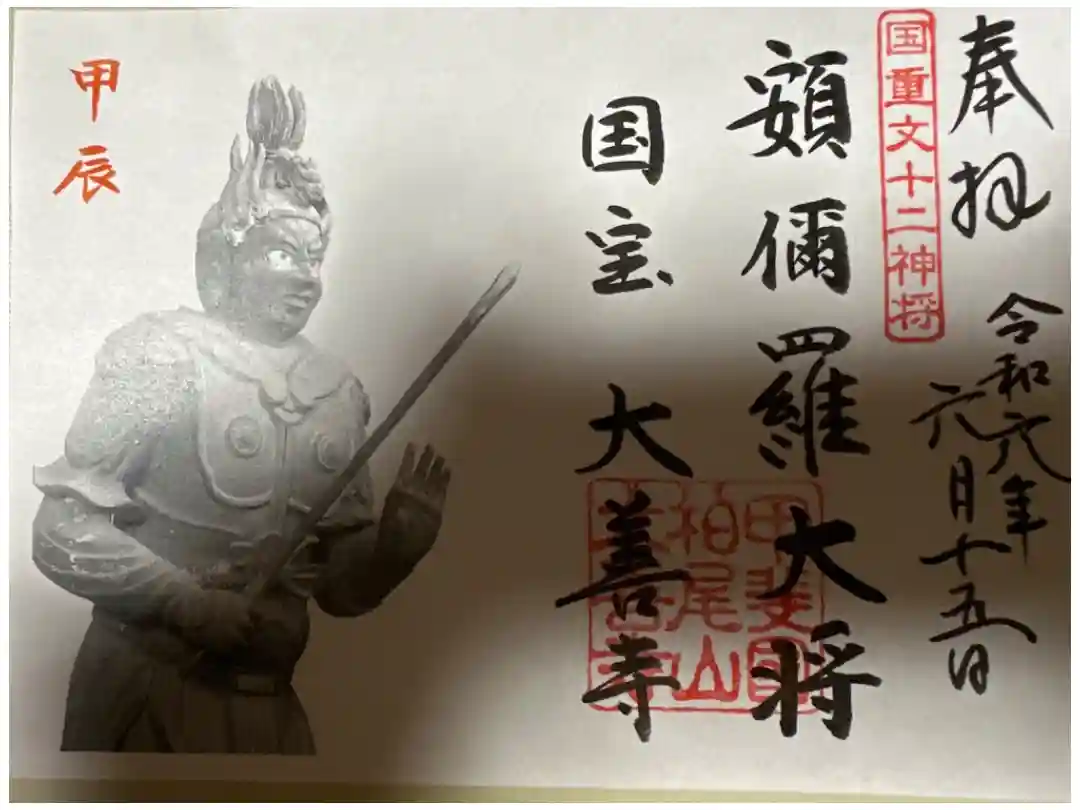 奉拝
令和六年
六月十五日
国重文十二神将
頞儞羅大将
甲斐国
柏尾山
大善寺
国宝 大善寺
甲辰